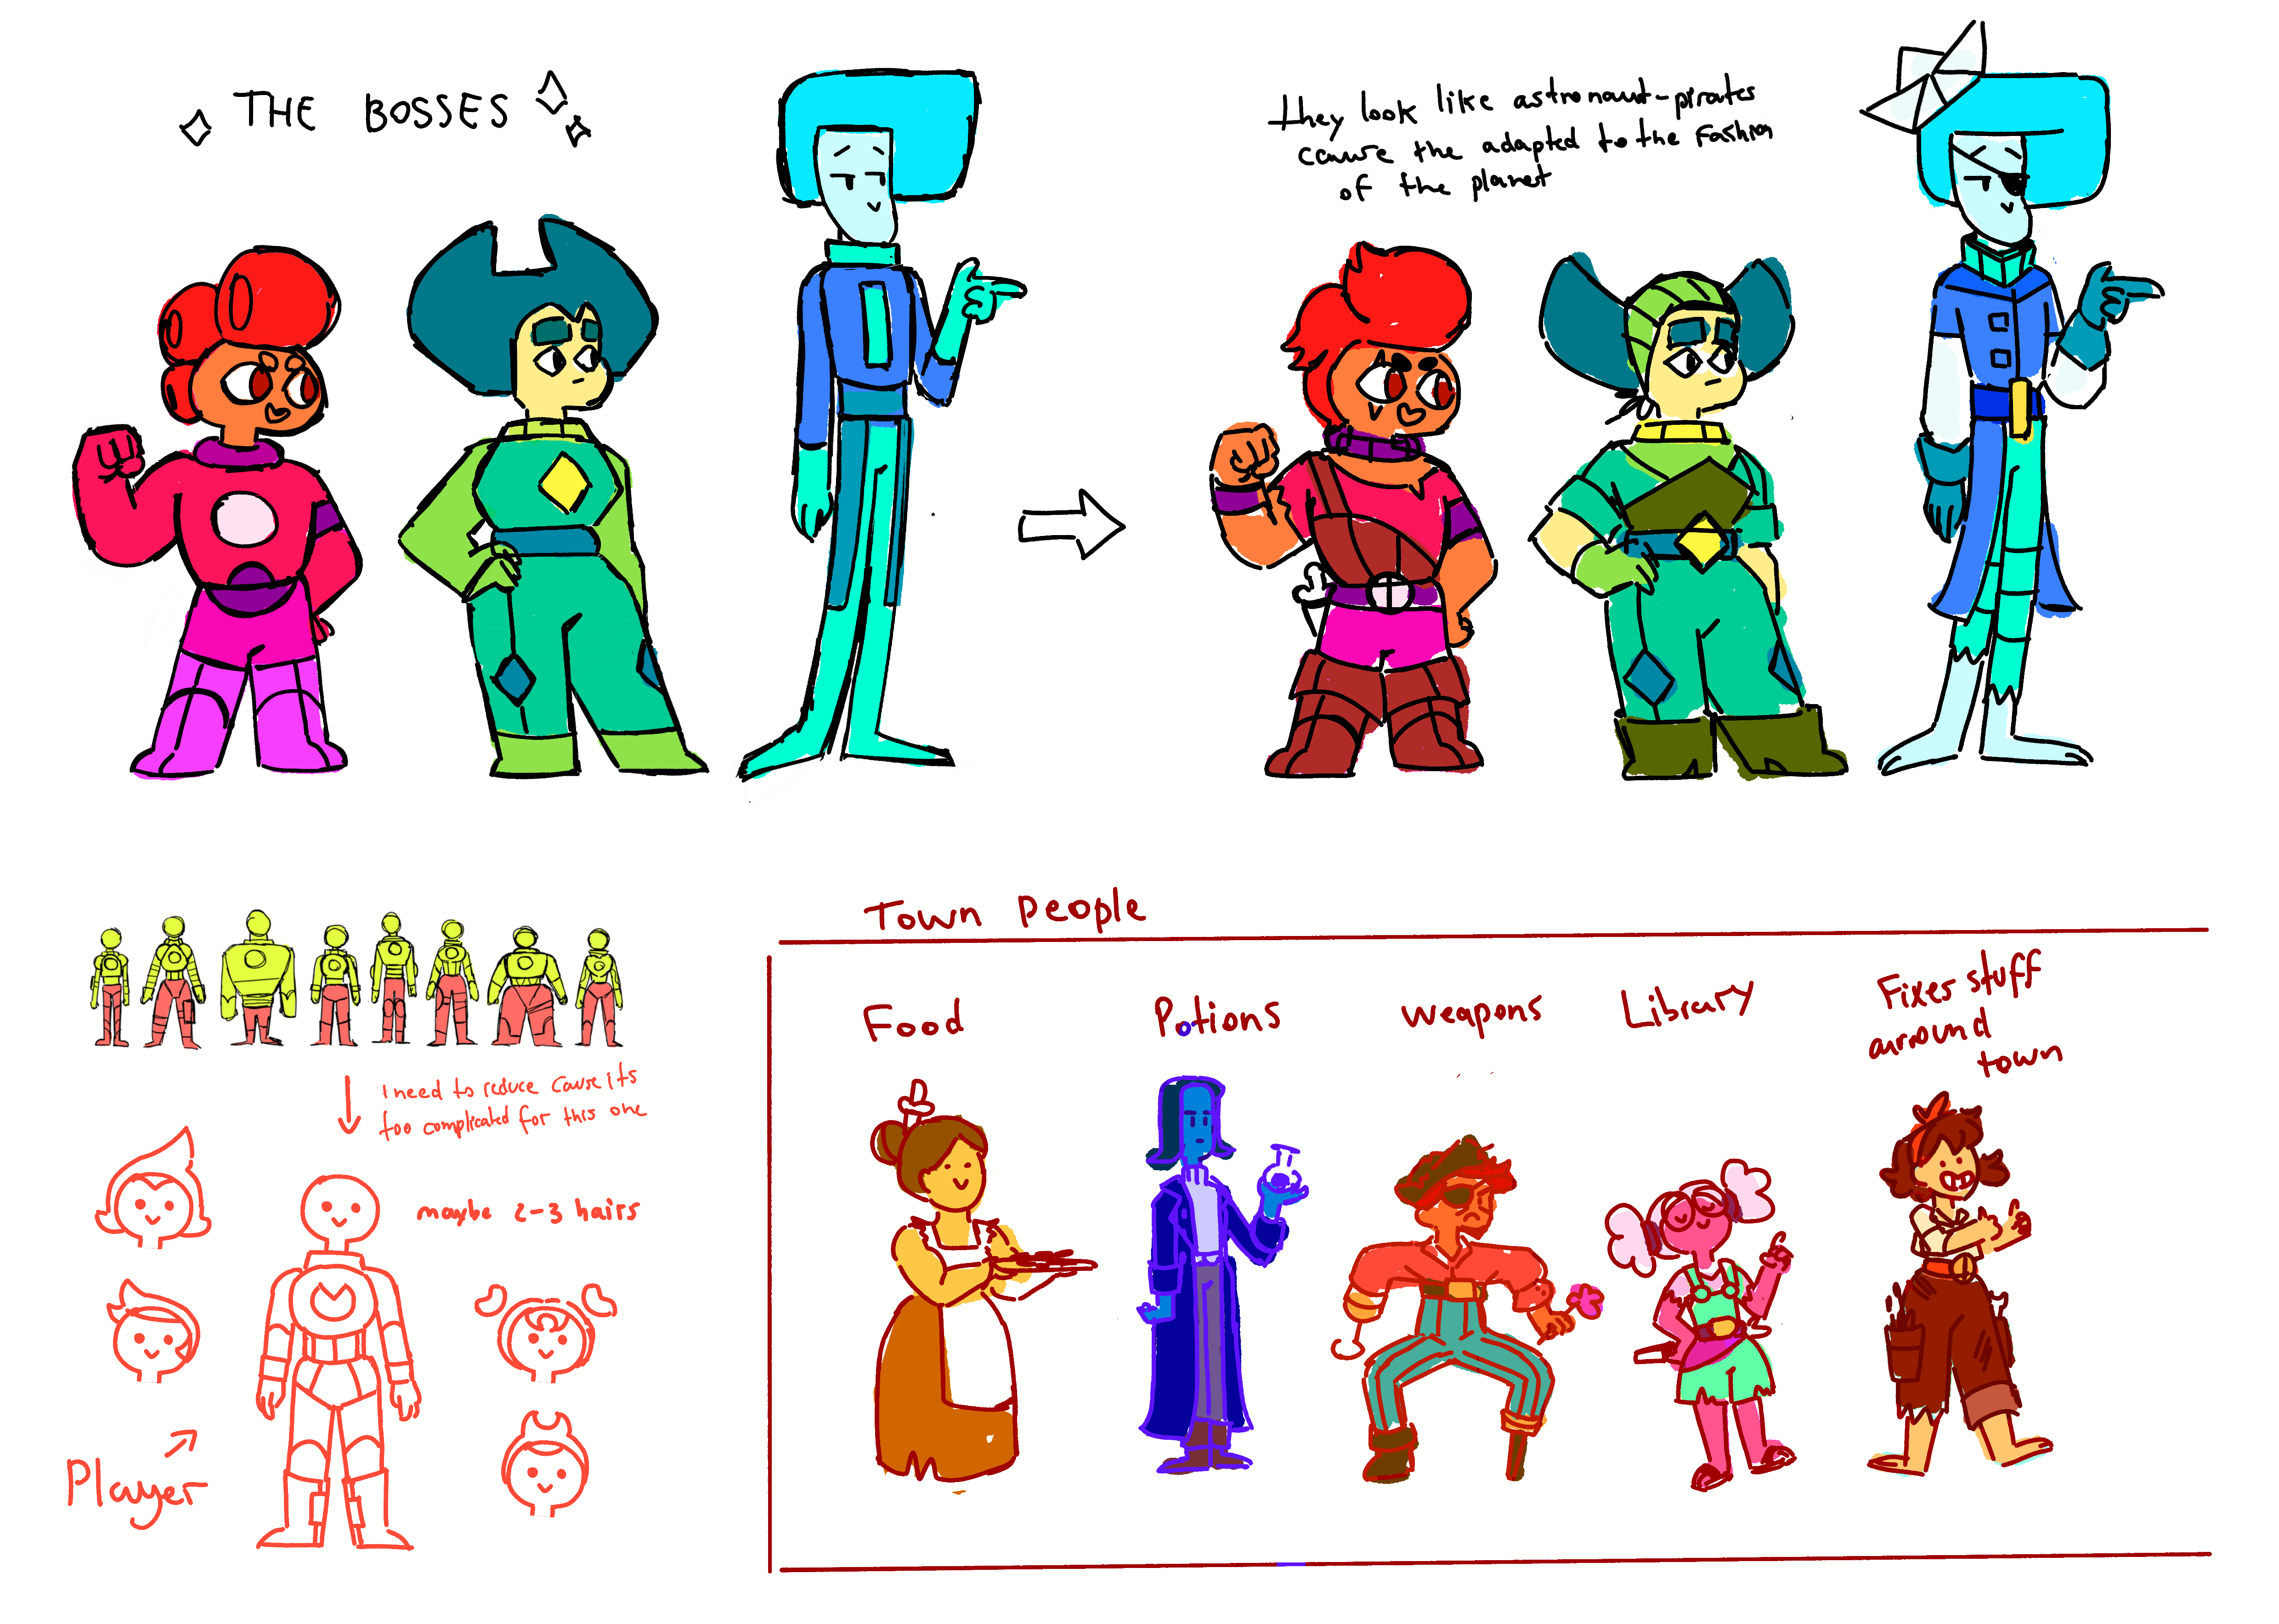 THE BOSSES
they look like astronaut-pirates
cause the adapted to the Fashion
of the planet
I need to reduce cause its
too complicated for this one
maybe 2-3 hairs
Player
Town People
Food
Potions
weapons
Library
Fixes stuff
arround
town